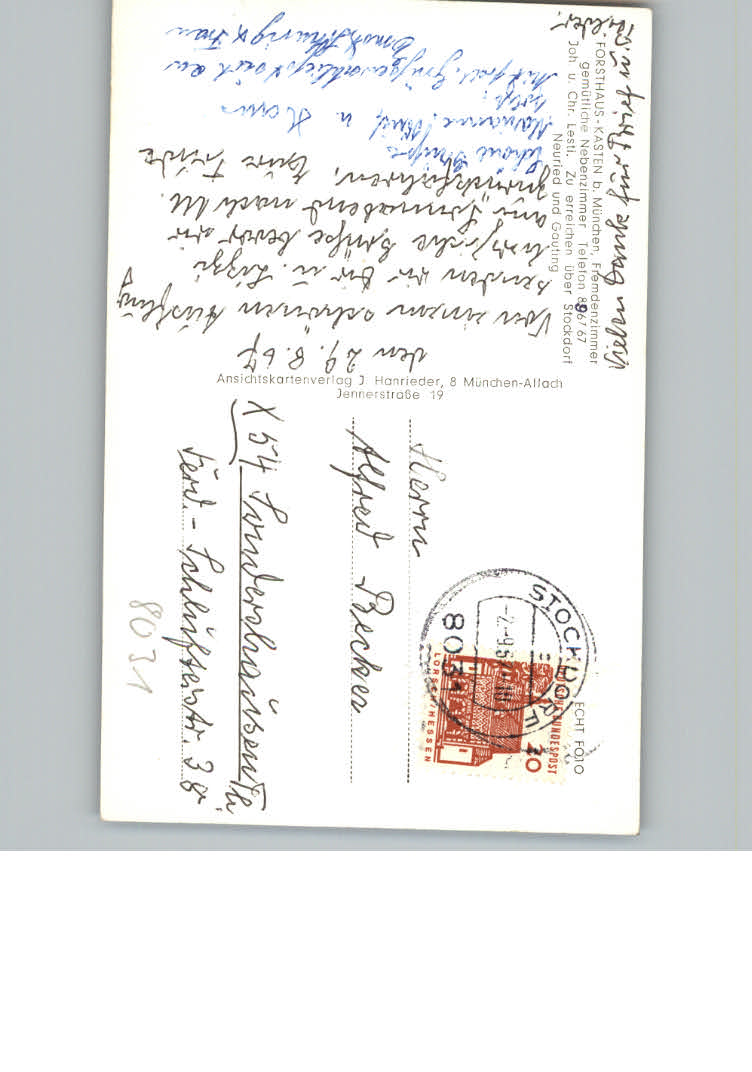 FORSTHAUS-KASTEN b. München, Fremdenzimmer
gemütliche Nebenzimmer Telefon 896767
Joh u. Chr. Lestl. Zu erreichen über Stockdorf
Neuried und Gauting
Vielen Dank für Brief u.
Bilder.
den 29.8.67
Von einem schönen Ausflug
senden wir Dir u. Lizzi
herzliche Grüße bevor wir
am Sonnabend nach M.
zurückfahren, Eure Frieda
Schöne Grüße
Marianne, u. Hans
Ansichtskartenverlag J Hanrieder, 8 München-Allach
Jennerstraße 19
ECHT FOTO
DEUTSCHE BUNDESPOST
20
LORSCH/HESSEN
STOCKDORF
-2.-9.67
8031
Herrn
Alfred Becker
X 54 Sondershausen/Th
Ferd.-Schlüfterstr. 38
8031